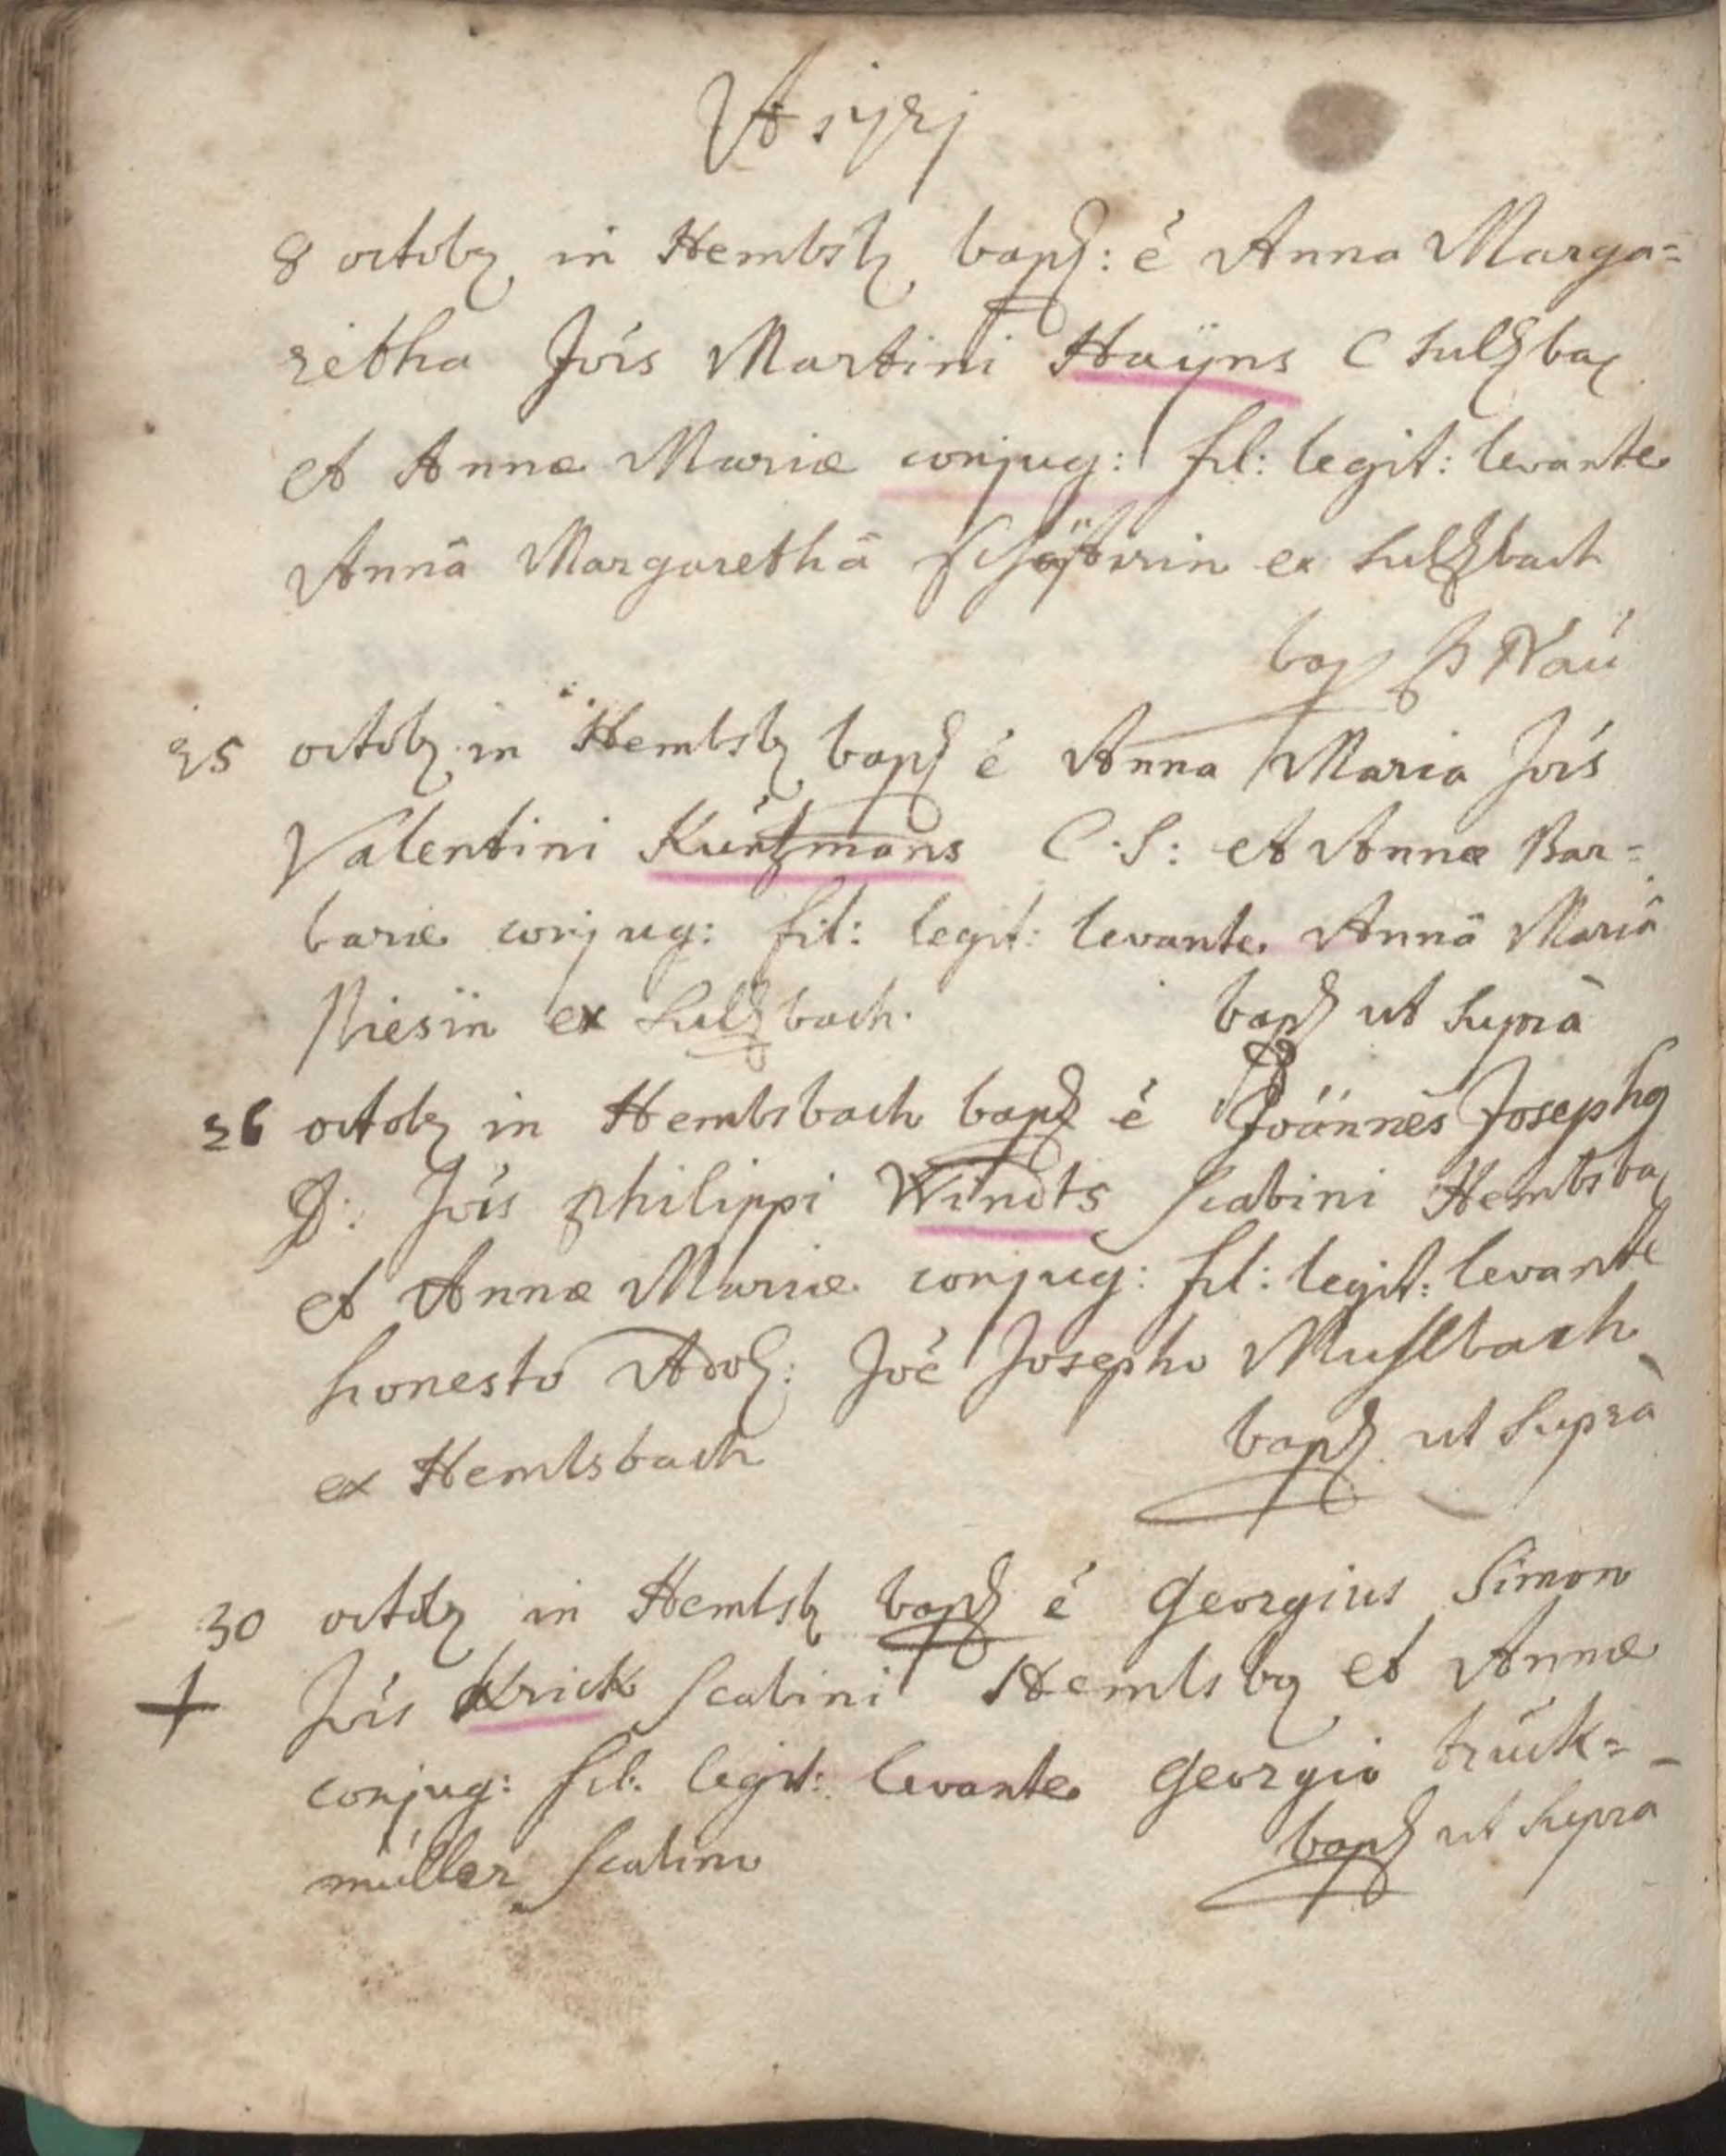 A 1721
8 octobr in Hembsb bapt: ē Anna Marga=
retha Jois Martini Haÿns C Sultzbac
et Annæ Mariæ conjug: fil: legit: levante
Annâ Margarethâ Schäfferin ex Sultzbach
bap P Naú
25 octobr in Hembsb bapt ē Anna Maria Jois
Valentini Kúntzmans C.S: et Annæ Bar=
baræ conjug: fil: legit: levante Annâ Mariâ
Riesin ex Sultzbach. bapt ut suprà
26 octobr in Hembsbach bapt ē Joannes Josephus
D: Jois philippi Windts Scabini Hembsbac
et Annæ Mariæ conjug: fil: legit: levante
honesto Adol: Joē Josepho Muhlbach
ex Hembsbach bapt ut suprà
30 octobr in Hembsb bapt ē Georgius Simon
+ Jois Krick Scabini Hembsbac et Annæ
conjug: fil: legit: levante Georgio trúck=
múller Scabino bapt ut suprà